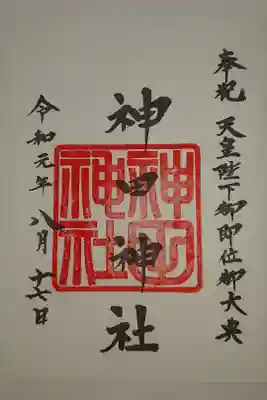 奉祝 天皇陛下御即位御大典
神田神社
令和元年 八月 十七日
神田神社